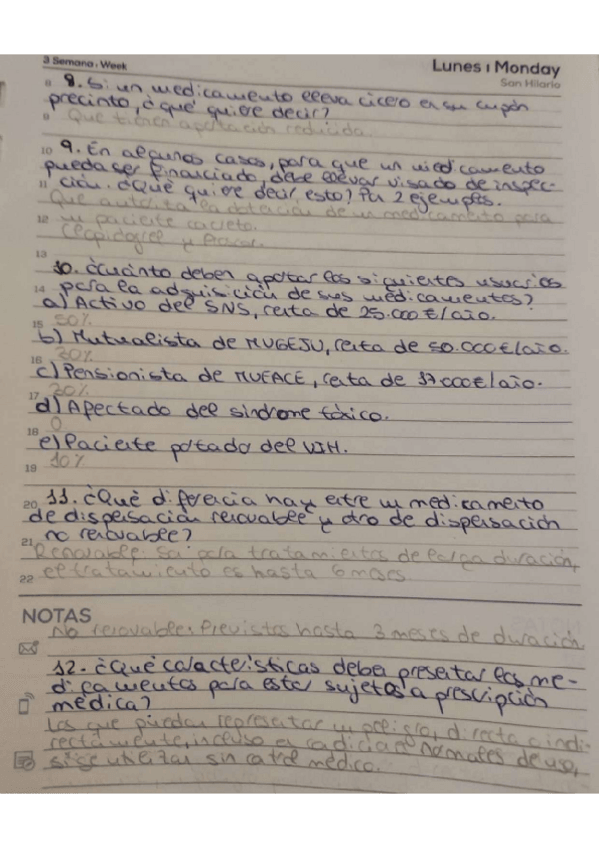 3 Semana · Week
Lunes | Monday
San Hilario
8. Si un medicamento lleva cícero en su cupón
precinto, ¿qué quiere decir?
Que tienen aportación reducida.
9. En algunos casos, para que un medicamento
pueda ser financiado, debe llevar visado de inspec-
ción. ¿Qué quiere decir esto? Pon 2 ejemplos.
Que autoriza la dotación de un medicamento para
un paciente concreto.
10. ¿Cuánto deben aportar los siguientes usuarios
para la adquisición de sus medicamentos?
a) Activo del SNS, renta de 25.000 €/año.
50%
b) Mutualista de MUGEJU, renta de 50.000€/año.
30%
c) Pensionista de MUFACE, renta de 37000€/año.
30%
d) Afectado del síndrome tóxico.
0
e) Paciente portador del VIH.
10%
11. ¿Qué diferencia hay entre un medicamento
de dispensación renovable y otro de dispensación
no renovable?
Renovable: Son para tratamientos de larga duración,
el tratamiento es hasta 6 meses.
NOTAS
No renovable: Previstos hasta 3 meses de duración
12. ¿Qué características deben presentar los me-
dicamentos para estar sujetos a prescripción
médica?
Los que puedan representar un peligro, directa o indi-
rectamente, incluso en condiciones normales de uso,
si se utilizan sin control médico.
8
9
10
11
12
13
14
15
16
17
18
19
20
21
22